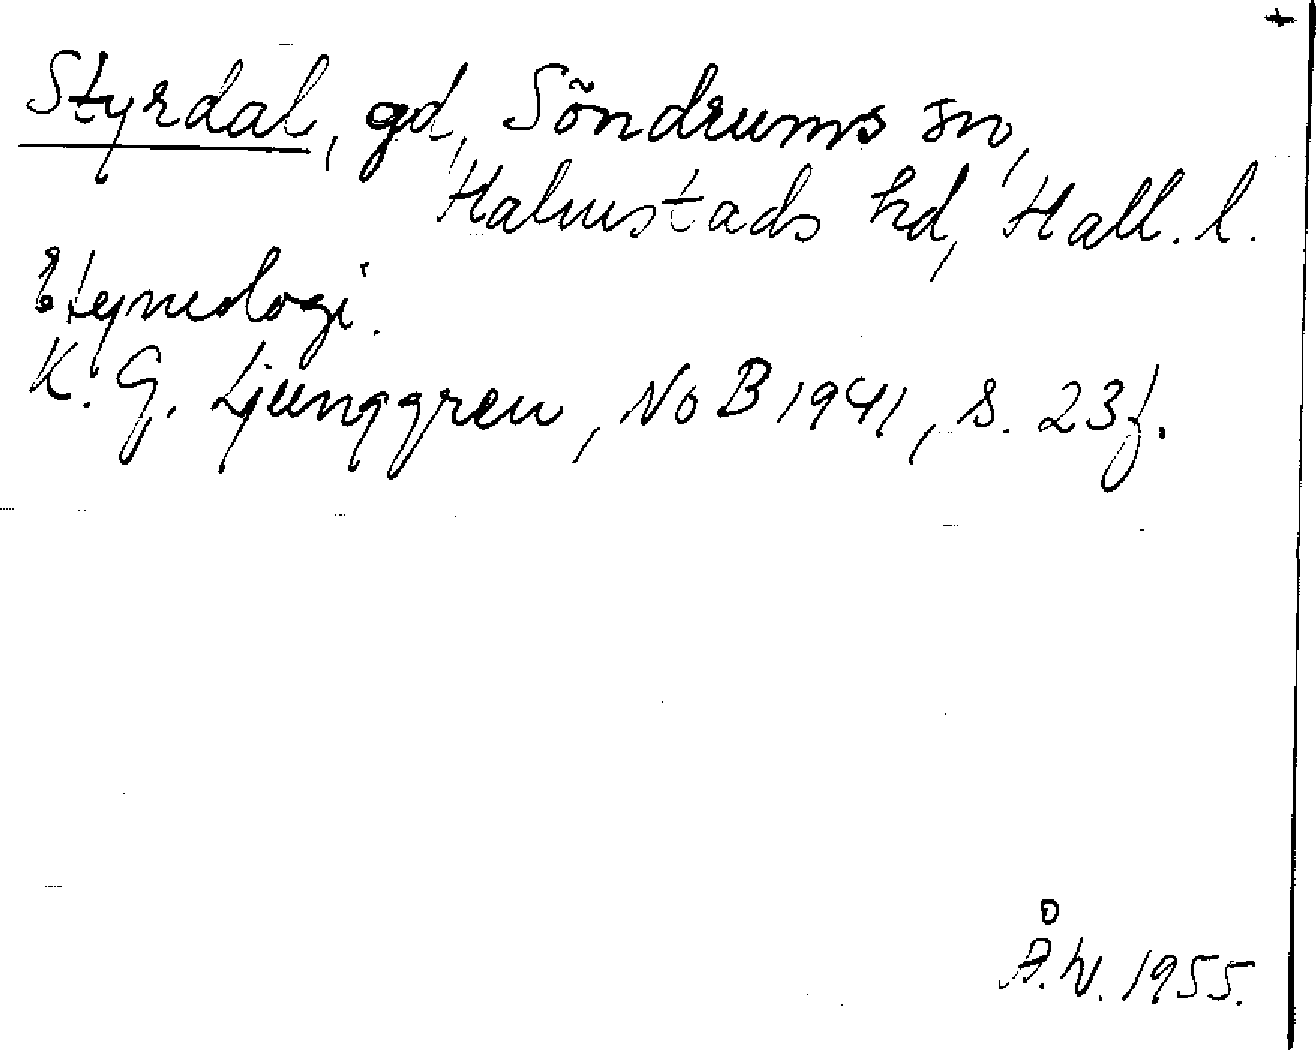 +
Styrdal, gd, Söndrums sn,
Halmstads hd, Hall. l.
Etymologi.
K. G. Ljunggren, NoB 1941, s. 23f.
Å.W. 1955.